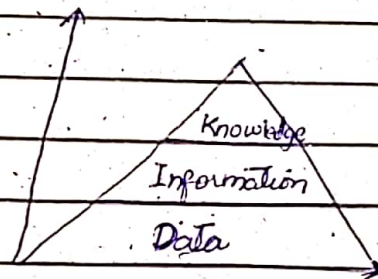 Knowledge
Information
Data